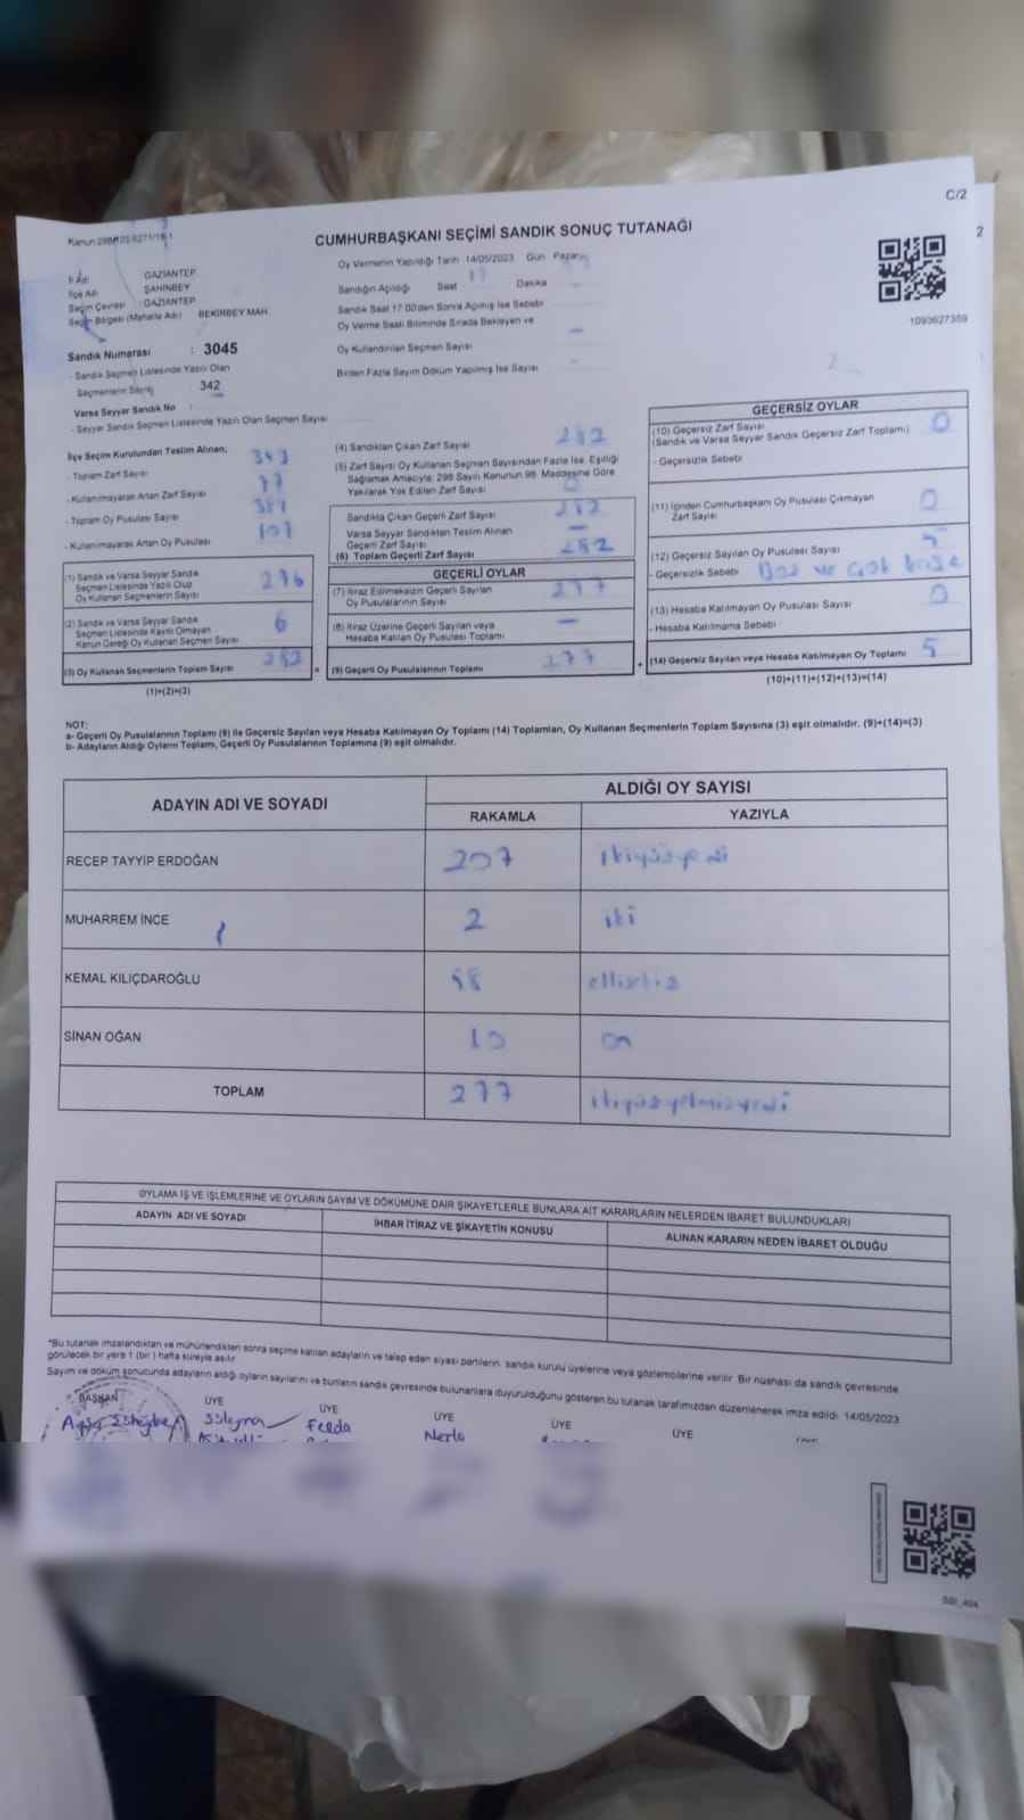 C/2
2
CUMHURBAŞKANI SEÇİMİ SANDIK SONUÇ TUTANAĞI
1093627359
GAZİANTEP
İlçe Adı ŞAHİNBEY
Seçim Çevresi : GAZİANTEP
Seçim Bölgesi (Mahalle Adı) BEKİRBEY MAH.
Sandık Numarası : 3045
- Sandık Seçmen Listesinde Yazılı Olan
Seçmenlerin Sayısı 342
Varsa Seyyar Sandık No :
- Seyyar Sandık Seçmen Listesinde Yazılı Olan Seçmen Sayısı
Oy Vermenin Yapıldığı Tarih 14/05/2023 Gün Pazar
Sandığın Açıldığı Saat 17 Dakika
Sandık Saat 17:00'den Sonra Açılmış İse Sebebi
Oy Verme Saati Bitiminde Sırada Bekleyen ve
Oy Kullandırılan Seçmen Sayısı
Birden Fazla Sayım Döküm Yapılmış İse Sayısı
İlçe Seçim Kurulundan Teslim Alınan;
- Toplam Zarf Sayısı
- Kullanılmayarak Artan Zarf Sayısı
- Toplam Oy Pusulası Sayısı
- Kullanılmayarak Artan Oy Pusulası
(1) Sandık ve Varsa Seyyar Sandık
Seçmen Listesinde Yazılı Olup
Oy Kullanan Seçmenlerin Sayısı 276
(2) Sandık ve Varsa Seyyar Sandık
Seçmen Listesinde Kayıtlı Olmayan
Kanun Gereği Oy Kullanan Seçmen Sayısı 6
(3) Oy Kullanan Seçmenlerin Toplam Sayısı 282
(1)+(2)=(3)
(4) Sandıktan Çıkan Zarf Sayısı 282
(5) Zarf Sayısı Oy Kullanan Seçmen Sayısından Fazla İse, Eşitliği
Sağlamak Amacıyla; 298 Sayılı Kanunun 98. Maddesine Göre
Yakılarak Yok Edilen Zarf Sayısı 0
Sandıkta Çıkan Geçerli Zarf Sayısı 282
Varsa Seyyar Sandıktan Teslim Alınan
Geçerli Zarf Sayısı —
(6) Toplam Geçerli Zarf Sayısı 282
GEÇERLİ OYLAR
(7) İtiraz Edilmeksizin Geçerli Sayılan
Oy Pusulalarının Sayısı 277
(8) İtiraz Üzerine Geçerli Sayılan veya
Hesaba Katılan Oy Pusulası Toplamı —
(9) Geçerli Oy Pusulalarının Toplamı 277
GEÇERSİZ OYLAR
(10) Geçersiz Zarf Sayısı 0
(Sandık ve Varsa Seyyar Sandık Geçersiz Zarf Toplamı)
- Geçersizlik Sebebi
(11) İçinden Cumhurbaşkanı Oy Pusulası Çıkmayan
Zarf Sayısı 0
(12) Geçersiz Sayılan Oy Pusulası Sayısı 5
- Geçersizlik Sebebi
(13) Hesaba Katılmayan Oy Pusulası Sayısı 0
- Hesaba Katılmama Sebebi
(14) Geçersiz Sayılan veya Hesaba Katılmayan Oy Toplamı 5
(10)+(11)+(12)+(13)=(14)
NOT:
a- Geçerli Oy Pusulalarının Toplamı (9) ile Geçersiz Sayılan veya Hesaba Katılmayan Oy Toplamı (14) Toplamları, Oy Kullanan Seçmenlerin Toplam Sayısına (3) eşit olmalıdır. (9)+(14)=(3)
b- Adayların Aldığı Oyların Toplamı, Geçerli Oy Pusulalarının Toplamına (9) eşit olmalıdır.
ADAYIN ADI VE SOYADI
ALDIĞI OY SAYISI
RAKAMLA YAZIYLA
RECEP TAYYİP ERDOĞAN 207 ikiyüzyedi
MUHARREM İNCE 2 iki
KEMAL KILIÇDAROĞLU 58 ellisekiz
SİNAN OĞAN 10 on
TOPLAM 277 ikiyüzyetmişyedi
OYLAMA İŞ VE İŞLEMLERİNE VE OYLARIN SAYIM VE DÖKÜMÜNE DAİR ŞİKAYETLERLE BUNLARA AİT KARARLARIN NELERDEN İBARET BULUNDUKLARI
ADAYIN ADI VE SOYADI İHBAR İTİRAZ VE ŞİKAYETİN KONUSU ALINAN KARARIN NEDEN İBARET OLDUĞU
*Bu tutanak imzalandıktan ve mühürlendikten sonra seçime katılan adayların ve talep eden siyasi partilerin, sandık kurulu üyelerine veya gözlemcilerine verilir. Bir nüshası da sandık çevresinde
görülecek bir yere 1 (bir) hafta süreyle asılır.
Sayım ve döküm sonucunda adayların aldığı oyların sayılarını ve bunların sandık çevresinde bulunanlara duyurulduğunu gösteren bu tutanak tarafımızdan düzenlenerek imza edildi. 14/05/2023
BAŞKAN ÜYE ÜYE ÜYE ÜYE ÜYE